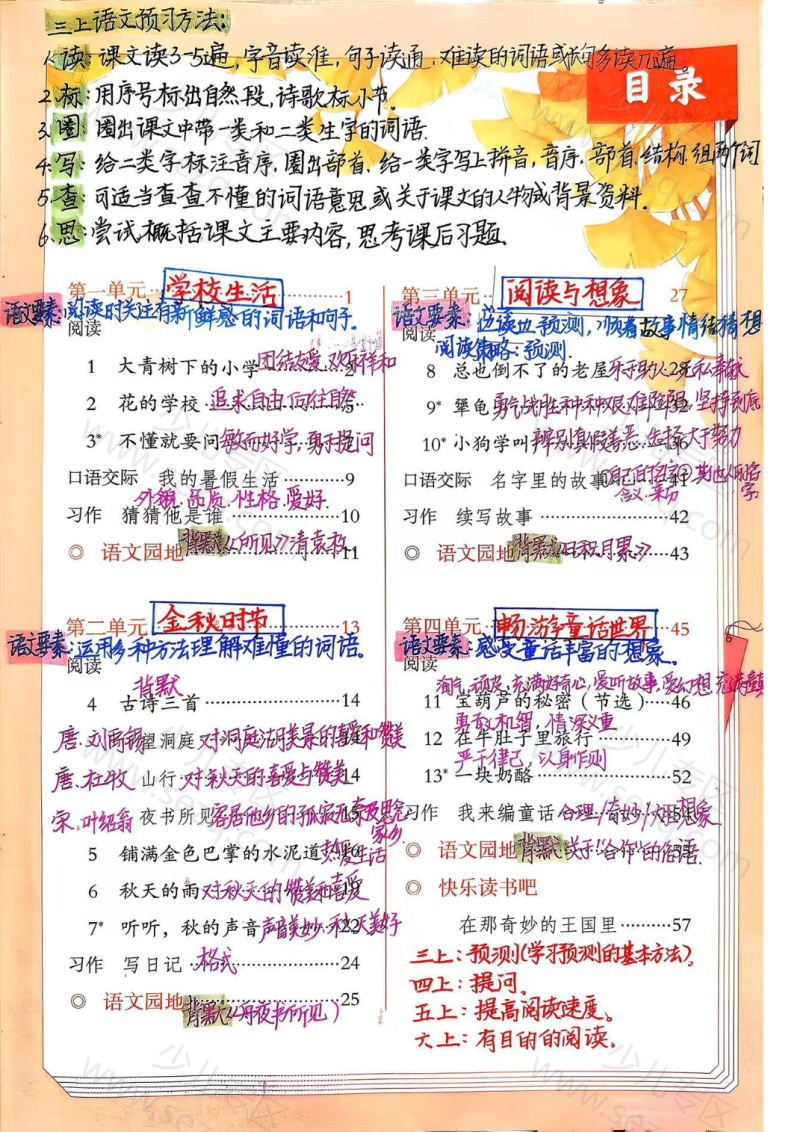 三上语文预习方法:
1.读:课文读3-5遍,字音读准,句子读通,难读的词语或句多读几遍。
目录
2.标:用序号标出自然段,诗歌标小节。
3.圈:圈出课文中带一类和二类生字的词语.
4.写:给二类字标注音序.圈出部首.给一类字写上拼音,音序.部首.结构.组两个词
5.查:可适当查查不懂的词语意思或关于课文的人物或背景资料.
6.思:尝试概括课文主要内容,思考课后习题.
第一单元 学校生活 1
语文要素:阅读时关注有新鲜感的词语和句子.
阅读
1 大青树下的小学 团结友爱.欢乐祥和
2 花的学校 追求自由.向往自然
3* 不懂就要问 敏而好学,勇于提问
口语交际 我的暑假生活 9
外貌.品质.性格.爱好.
习作 猜猜他是谁 10
语文园地 背默《所见》清袁枚 11
第二单元 金秋时节 13
语文要素:运用多种方法理解难懂的词语。
阅读
背默
4 古诗三首 14
唐.刘禹锡 望洞庭 对洞庭湖美景的喜爱和赞美
唐.杜牧 山行 对秋天的喜爱与赞美 14
宋.叶绍翁 夜书所见 客居他乡的孤寂
家乡.
5 铺满金色巴掌的水泥道 热爱生活
6 秋天的雨 对秋天的赞美和喜爱
7* 听听,秋的声音 声音美妙.秋天美好 22
习作 写日记 格式 24
语文园地 25
背默
第三单元 阅读与想象 27
语文要素:边读边预测,顺着故事情结猜想
阅读
阅读策略:预测.
8 总也倒不了的老屋 乐于助人.无私奉献
9* 犟龟 勇气战胜种种艰难险阻.坚持到底
10* 小狗学叫 辨别真假善恶
口语交际 名字里的故事
含义.来历
习作 续写故事 42
语文园地 背默《日积月累》 43
第四单元 畅游童话世界 45
语文要素:感受童话丰富的想象。
阅读
淘气.顽皮.充满好奇心,爱听故事.爱幻想
11 宝葫芦的秘密(节选) 46
勇敢机智,情深义重
12 在牛肚子里旅行 49
严于律己,以身作则
13* 一块奶酪 52
习作 我来编童话 合理/奇妙/大胆想象
语文园地 背默:关于“合作”的俗语.
快乐读书吧
在那奇妙的王国里 57
三上:预测(学习预测的基本方法)。
四上:提问.
五上:提高阅读速度。
六上:有目的的阅读.
少儿专区